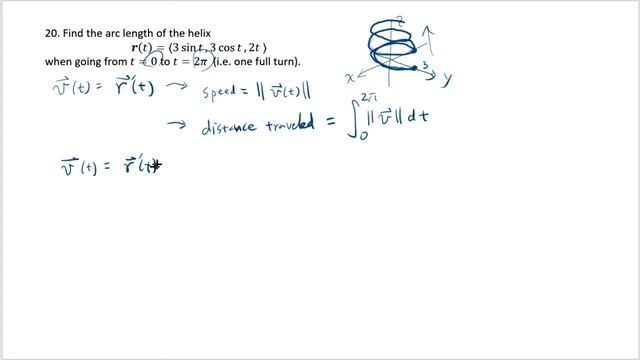 20. Find the arc length of the helix
r(t) = ⟨3 sin t, 3 cos t, 2t⟩
when going from t = 0 to t = 2π (i.e. one full turn).
z
3
x
y
v⃗(t) = r⃗'(t) → speed = ||v⃗(t)||
→ distance traveled = ∫₀^2π ||v⃗|| dt
v⃗(t) = r⃗'(t)